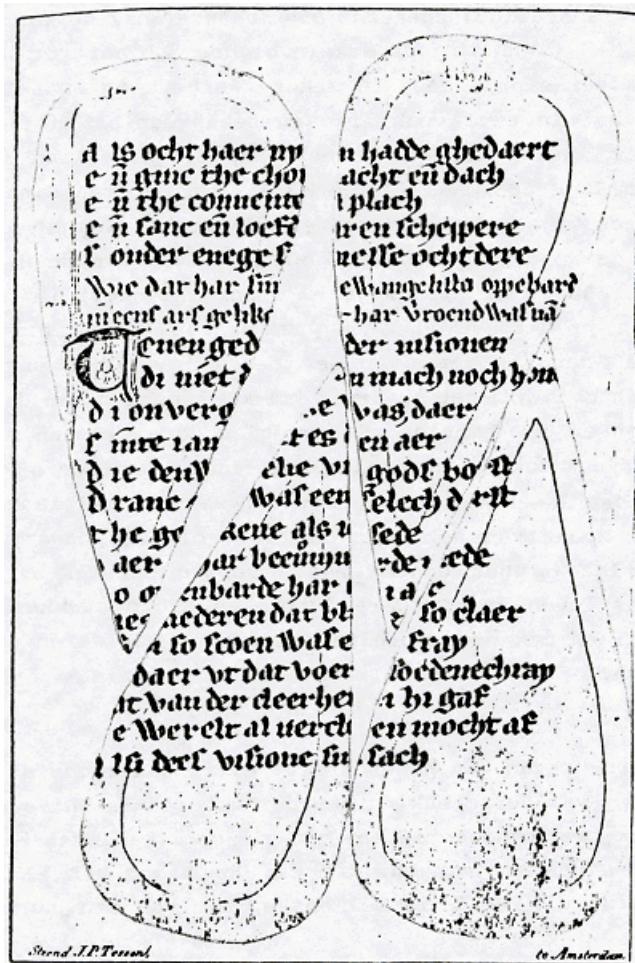 a ls ocht haer ny n hadde ghedaert
e ñ ginc the chor acht eñ dach
e ñ the conuente t plach
e ñ sanc eñ locfe ren schepere
s onder enege s nesse ocht dere
Wie dat har sin e Wangelista oppebard
gelike har vroend Was
T eneu ged der uisionen
di niet d n mach noch hon
d i onverg e Was daer
s inre lan t es den aer
d ie den W elie vr gods bo st
d ranc Was een selech d rst
the ge keue als sede
aer har de mede
o enbarde har
nederen dat bl so claer
n so scoen Was e fray
daer vt dat voer
at van der cleerhei n hi gaf
e Werelt al uercl en mocht af
si dees visione sach
Steend. J.P. Tessond, te Amsterdam.